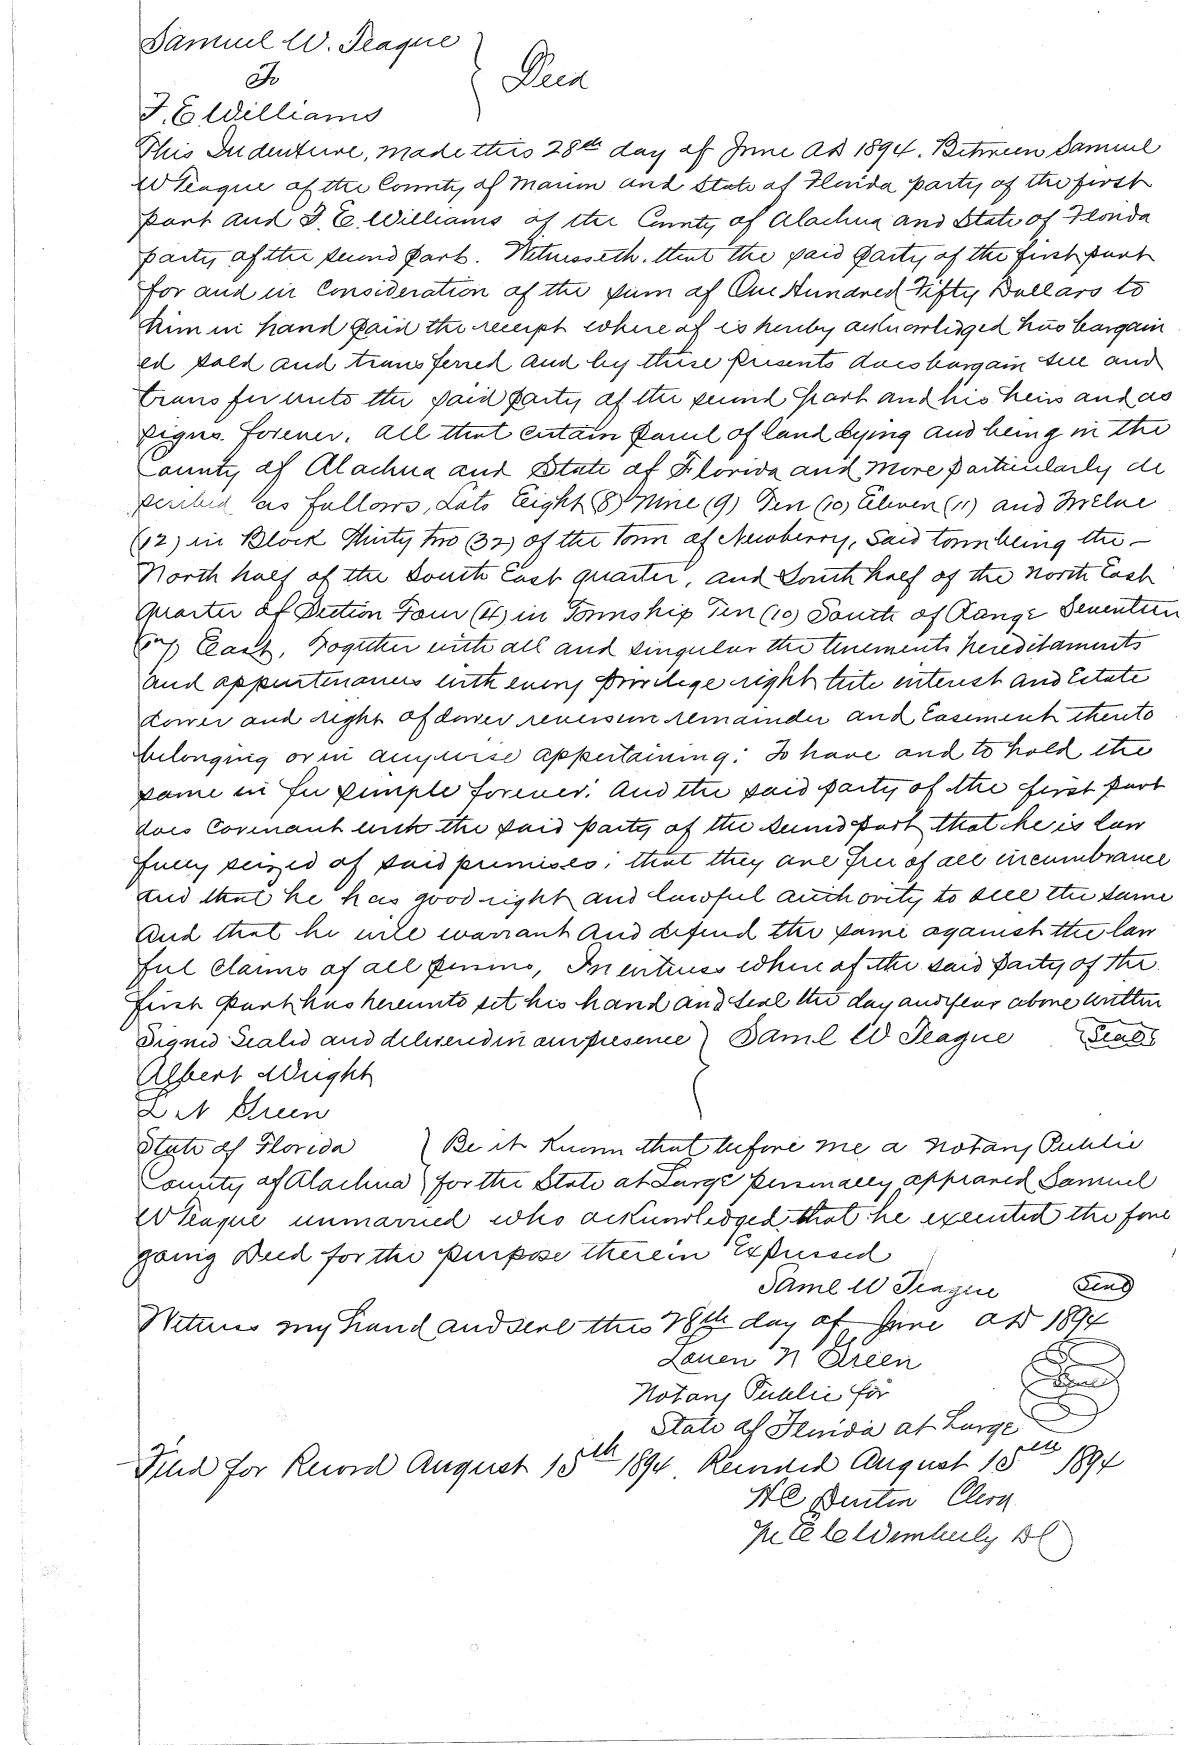 Samuel W. Teague
To
Deed
F. E. Williams
This Indenture, made this 28th day of June AD 1894. Between Samuel
W Teague of the County of Marion and State of Florida party of the first
part and F. E. Williams of the County of Alachua and State of Florida
party of the second part. Witnesseth. that the said party of the first part
for and in Consideration of the sum of One Hundred Fifty Dollars to
him in hand paid the receipt where of is hereby acknowledged has bargain
ed sold and transferred and by these presents does bargain sell and
transfer unto the said party of the second part and his heirs and as
signs forever. All that certain parcel of land lying and being in the
County of Alachua and State of Florida and More particularly de
scribed as follows, Lots Eight (8) Nine (9) Ten (10) Eleven (11) and Twelve
(12) in Block Thirty two (32) of the Town of Newberry, Said town being the -
North half of the South East quarter, and South half of the North East
quarter of Section Four (4) in Township Ten (10) South of Range Seventeen
(17) East, Together with all and singular the tenements hereditaments
and appurtenances with every privilege right title interest and Estate
dower and right of dower reversion remainder and Easement thereto
belonging or in anywise appertaining: To have and to hold the
same in fee simple forever. And the said party of the first part
does Covenant with the said party of the second part that he is law
fully seized of said premises; that they are free of all incumbrance
and that he has good right and lawful authority to sell the same
And that he will warrant And defend the same against the law
ful claims of all persons, In witness where of the said party of the
first part has hereunto set his hand and seal the day and year above written
Signed Sealed and delivered in our presence Saml W Teague Seal
Albert Wright
L N Green
State of Florida Be it Known that before me a Notary Public
County of Alachua for the State at Large personally appeared Samuel
W Teague unmarried who acknowledged that he executed the fore
going Deed for the purpose therein Expressed
Saml W Teague Seal
Witness my hand and seal this 28th day of June AD 1894
Louen N Green
Notary Public for Seal
State of Florida at Large
Filed for Record August 15th 1894 Recorded August 15th 1894
H C Denton Clerk
Wimberly DC